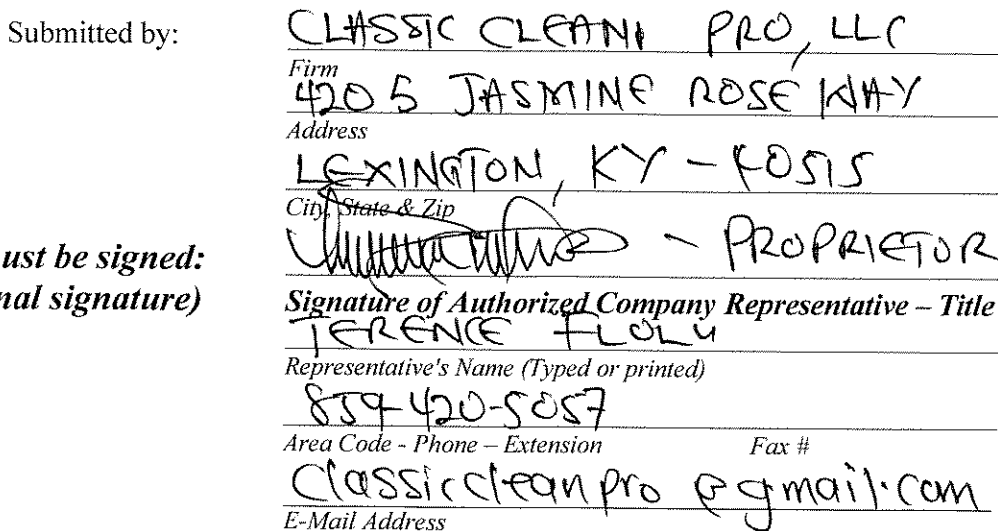 Submitted by: CLASSIC CLEAN PRO, LLC
Firm
4205 JASMINE ROSE WAY
Address
LEXINGTON, KY - 40515
City, State & Zip
- PROPRIETOR
ust be signed:
Signature of Authorized Company Representative – Title
nal signature)
TERENCE
Representative's Name (Typed or printed)
859-420-5057
Area Code - Phone – Extension Fax #
Classiccleanpro@gmail.com
E-Mail Address